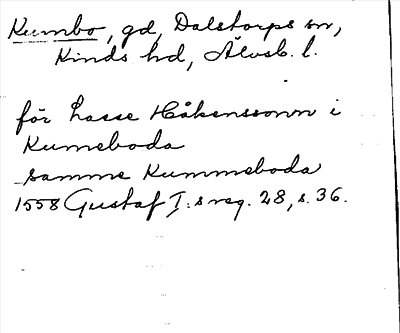 Kumbo, gd, Dalstorps sn,
Kinds hd, Älvsb. l.
för Lasse Håkensson i
Kumeboda
samme Kummeboda
1558 Gustaf I:s reg. 28, s. 36.